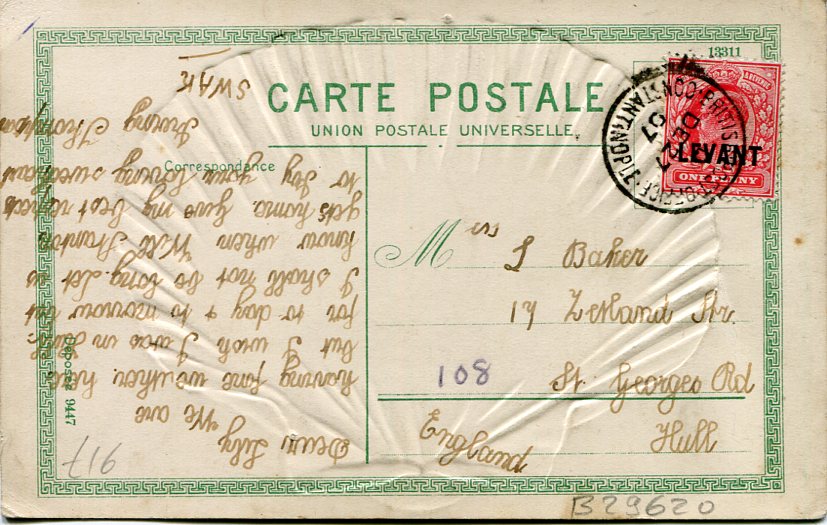 13311
CARTE POSTALE
UNION POSTALE UNIVERSELLE.
Correspondance
BRITISH POST-OFFICE CONSTANTINOPLE
DE 21
07
& REVENUE
LEVANT
ONE PENNY
Miss L Baker
17 Zetland Str.
St. Georges Rd
Hull
England
108
Dear Lily
We are
having fine weather here
but I wish I was in Hull
for to day & to morrow but
I shall not be long. Let us
know when Will Franton
gets home. Give my best respects
to Ivy your loving sweetheart
SWAK
Deposée 9447
917
B29620